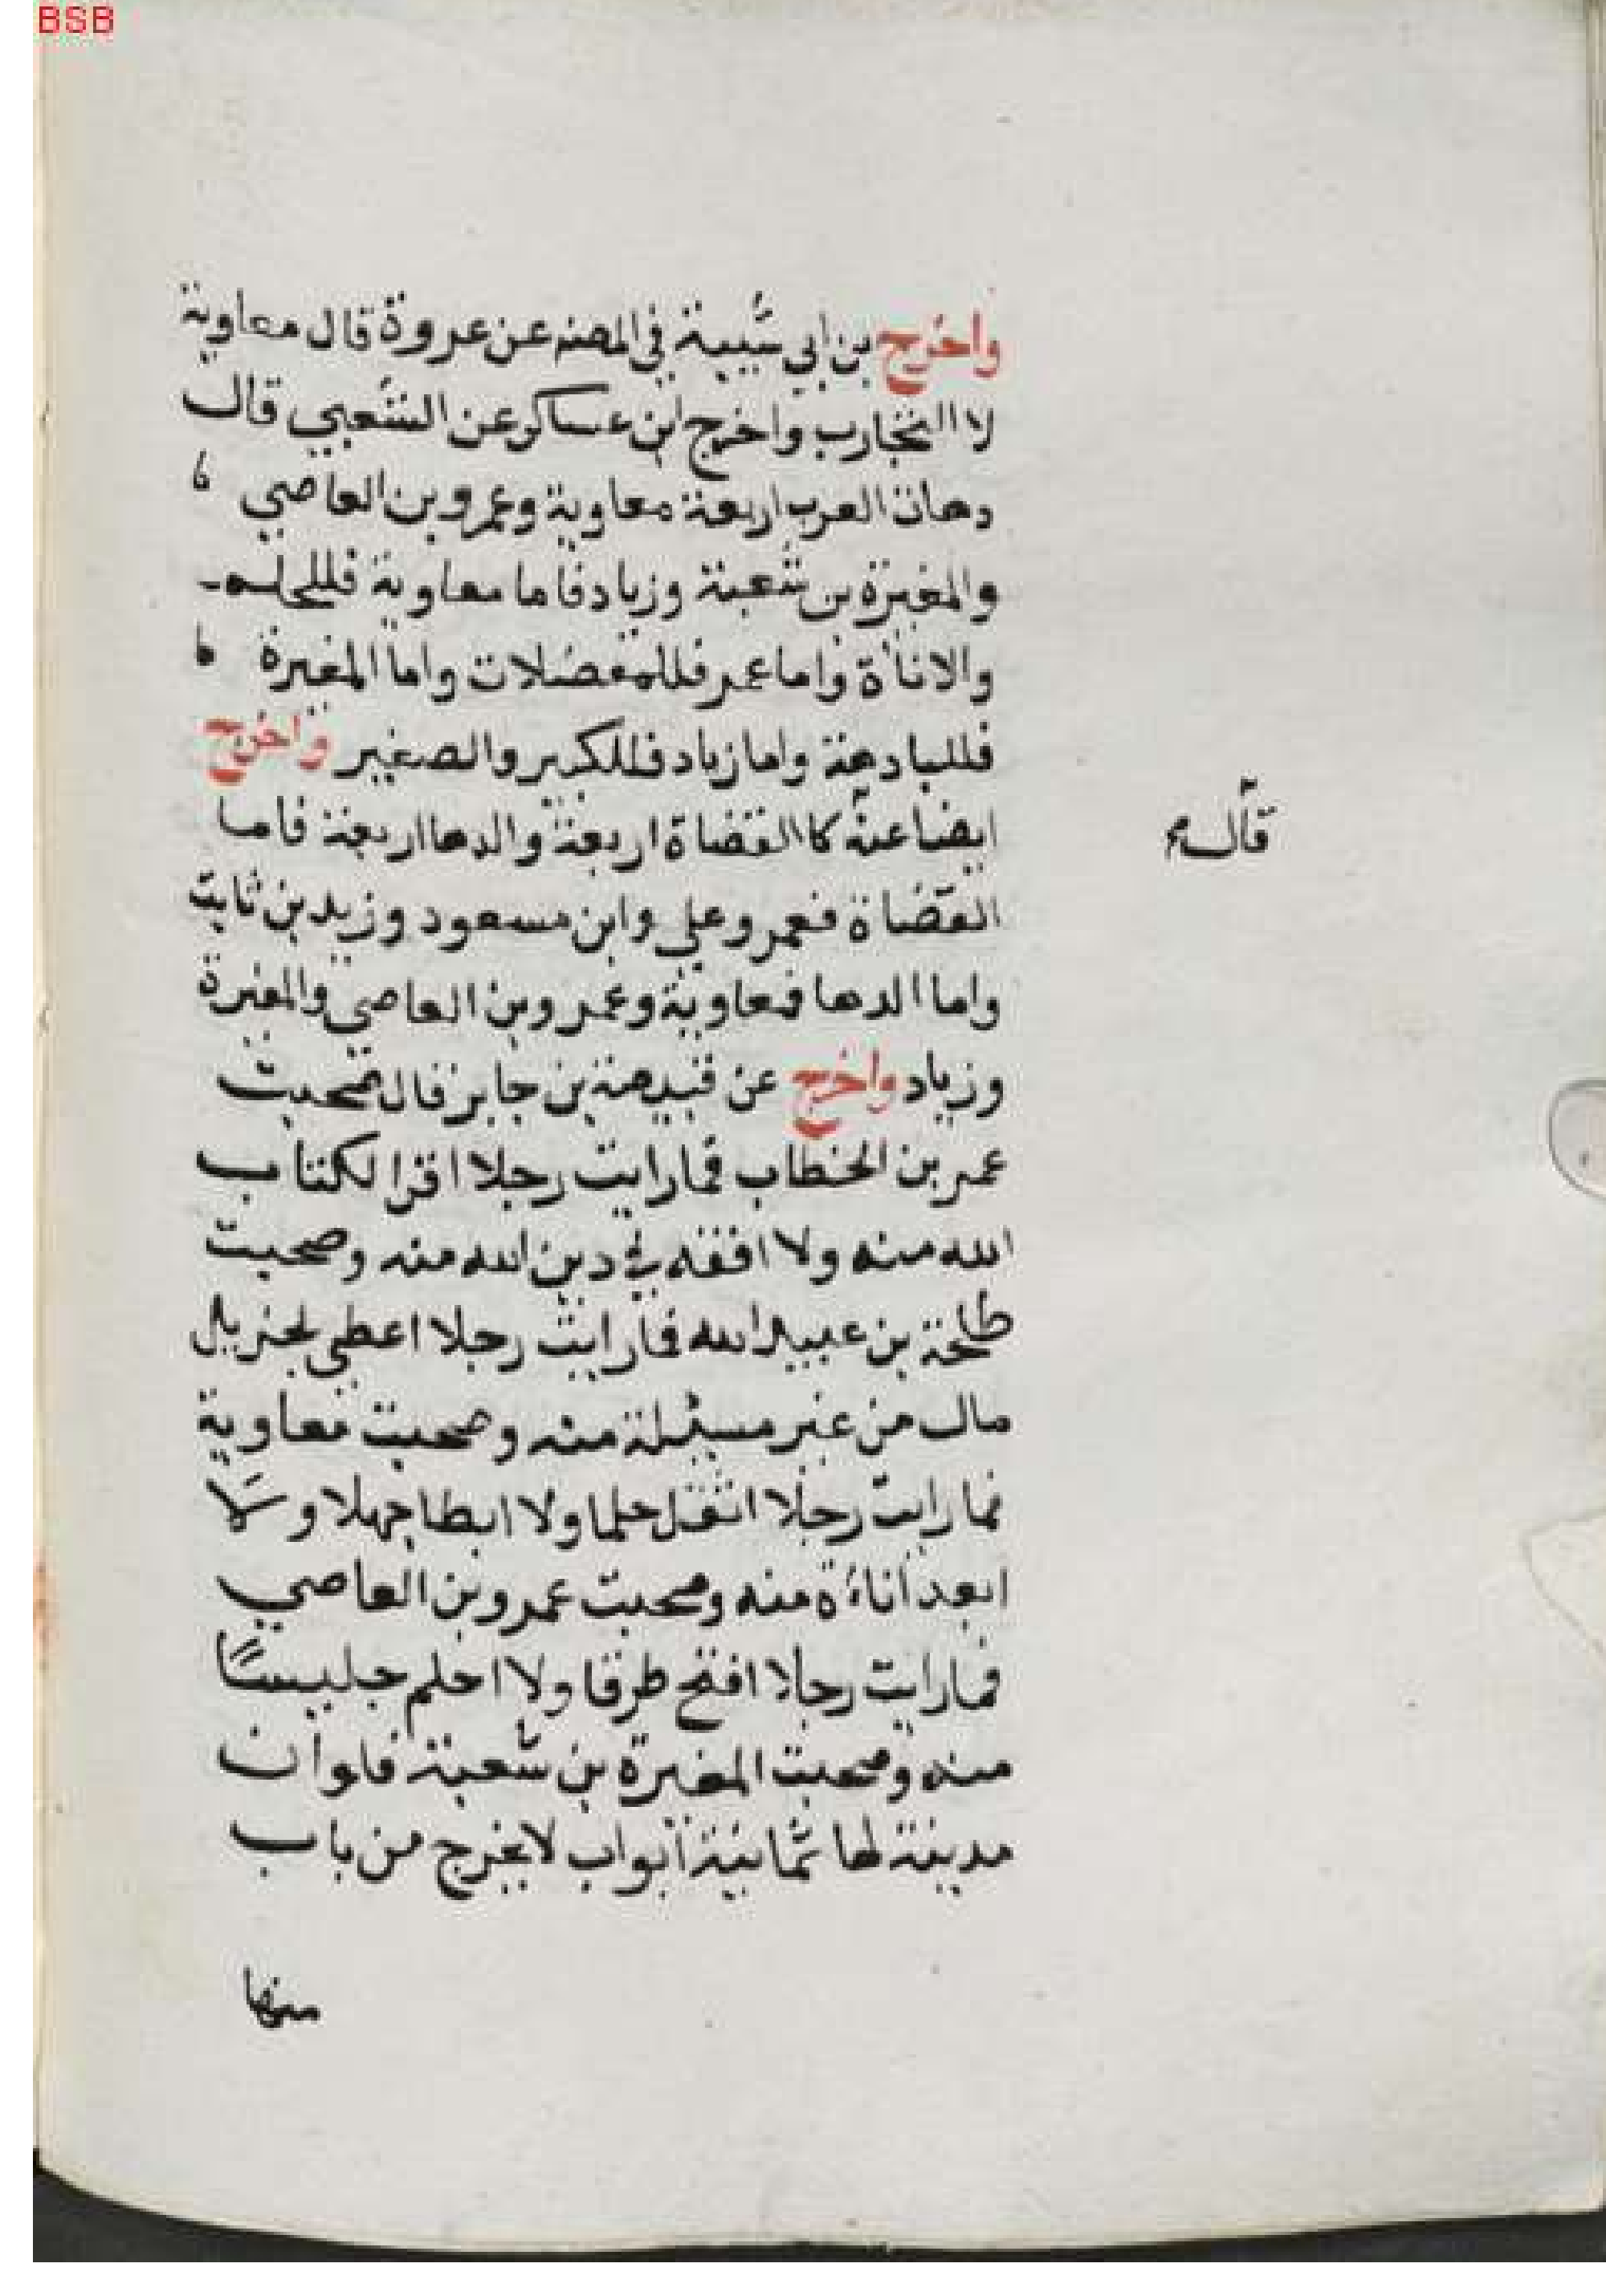 BSB
واخرج بن ابي شيبة في المصنم عن عروة قال معاوية
لا التجارب واخرج ابن عساكر عن الشعبي قال
دهاة العرب اربعة معاوية وعمرو بن العاصي
والمغيرة بن شعبة وزياد فاما معاوية فللحلم
والاناأة واما عمر فللمعضلات واما المغيرة
فللبادهة واما زياد فللكبير والصغير واخرج
ايضا عنه كا القضاة اربعة والدها اربعة فاما
قال
القضاة فعمر وعلي وابن مسعود وزيد بن ثابت
واما الدها فمعاوية وعمرو بن العاصي والمغيرة
وزياد واخرج عن قبيصة بن جابر قال صحبت
عمر بن الخطاب فما رايت رجلا اقرا لكتاب
الله منه ولا افقه في دين الله منه وصحبت
طلحة بن عبيد الله فما رايت رجلا اعطي لجزيل
مال من غير مسئلة منه وصحبت معاوية
فما رايت رجلا اثقل حلما ولا ابطا جهلا ولا
ابعد اناءة منه وصحبت عمرو بن العاصي
فما رايت رجلا افتح طرفا ولا احلم جليسًا
منه وصحبت المغيرة بن شعبة فلو ان
مدينة لها ثمانية ابواب لا يخرج من باب
منها